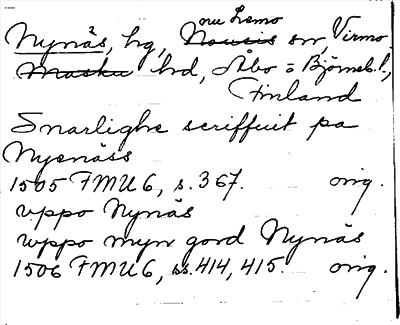 nu Lemo
Nynäs, hg, Nousis sn, Virmo
Masku hd, Åbo = Björneb.l.,
Finland
Snarlighe scriffuit pa
Nyenäss
1505 FMU 6, s. 367. orig.
vppo Nynäs
wppo myn gord Nynäs
1506 FMU 6, ss. 414, 415. orig.